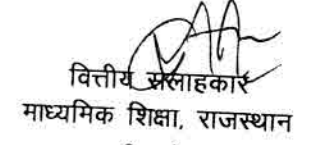 वित्तीय सलाहकार
माध्यमिक शिक्षा, राजस्थान